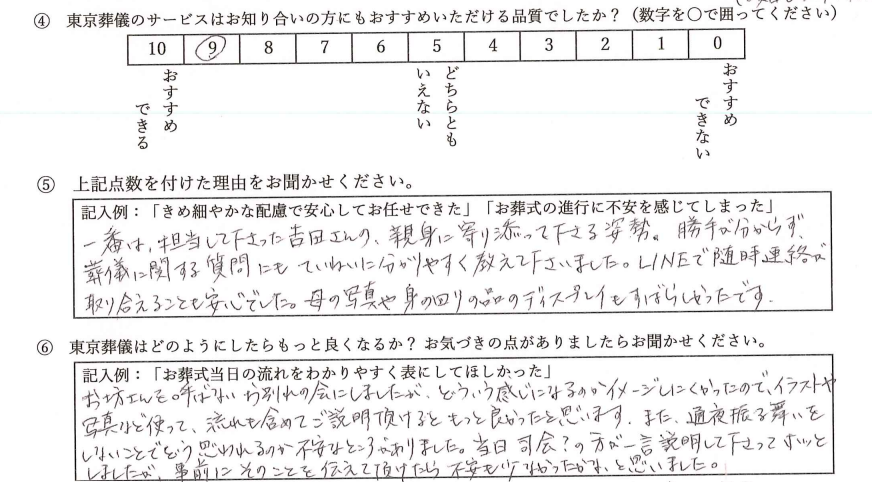 ④ 東京葬儀のサービスはお知り合いの方にもおすすめいただける品質でしたか？（数字を〇で囲ってください）
10 9 8 7 6 5 4 3 2 1 0
おすすめできる
どちらともいえない
おすすめできない
⑤ 上記点数を付けた理由をお聞かせください。
記入例：「きめ細やかな配慮で安心してお任せできた」「お葬式の進行に不安を感じてしまった」
一番は、担当して下さった吉田さんの、親身に寄り添って下さる姿勢。勝手が分からず、
葬儀に関する質問にもていねいに分かりやすく教えて下さいました。LINEで随時連絡が
取り合えることも安心でした。母の写真や身の回りの品のディスプレイもすばらしかったです.
⑥ 東京葬儀はどのようにしたらもっと良くなるか？ お気づきの点がありましたらお聞かせください。
記入例：「お葬式当日の流れをわかりやすく表にしてほしかった」
お坊さんを呼ばないお別れの会にしましたが、どういう感じになるのかイメージしにくかったので、イラストや
写真など使って、流れも含めてご説明頂けるともっと良かったと思います. また、通夜振る舞いを
しないことでどう思われるのか不安なところがありました。当日 司会？の方が一言説明して下さってホッと
しましたが、事前にそのことを伝えて頂けたら不安も少なかったかな、と思いました。